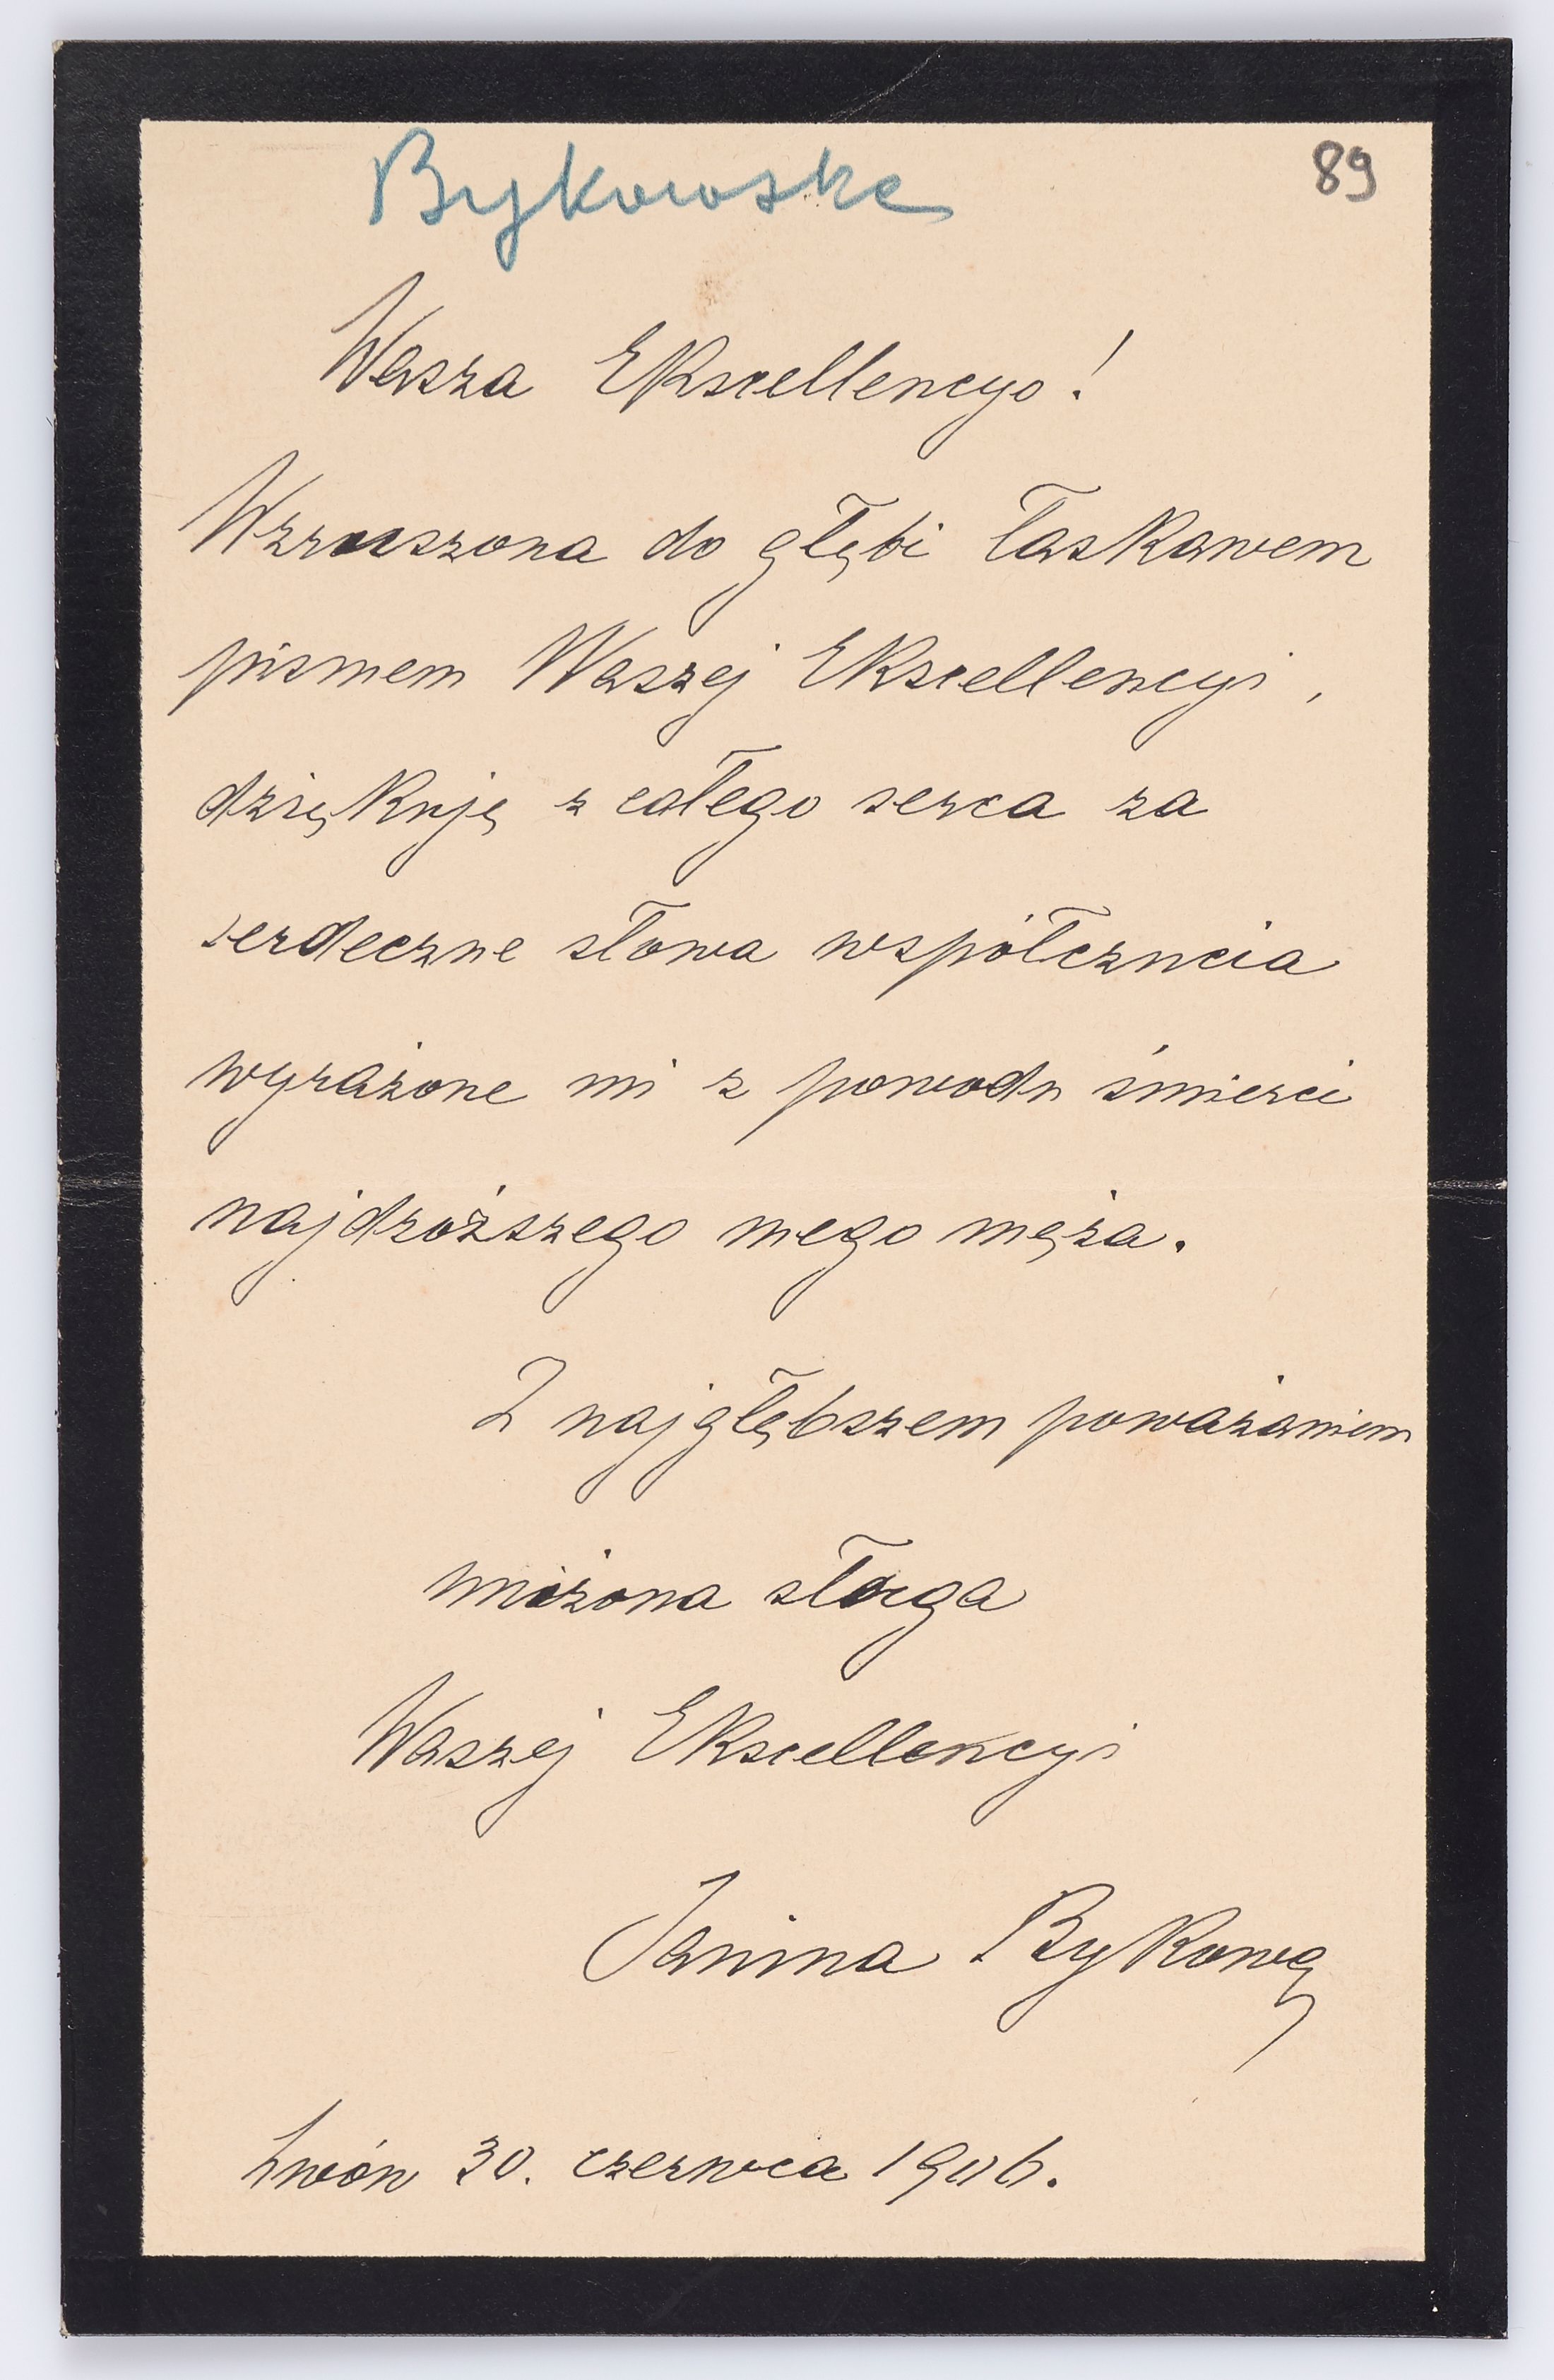 Bykowska
89
Wasza Ekscellencyo!
Wzruszona do głębi łaskawem
pismem Waszej Ekscellencyi,
dziękuję z całego serca za
serdeczne słowa współczucia
wyrażone mi z powodu śmierci
najdroższego mego męża.
Z najgłębszem poważaniem
uniżona sługa
Waszej Ekscellencyi
Janina Bykowa
Lwów 30. czerwca 1906.